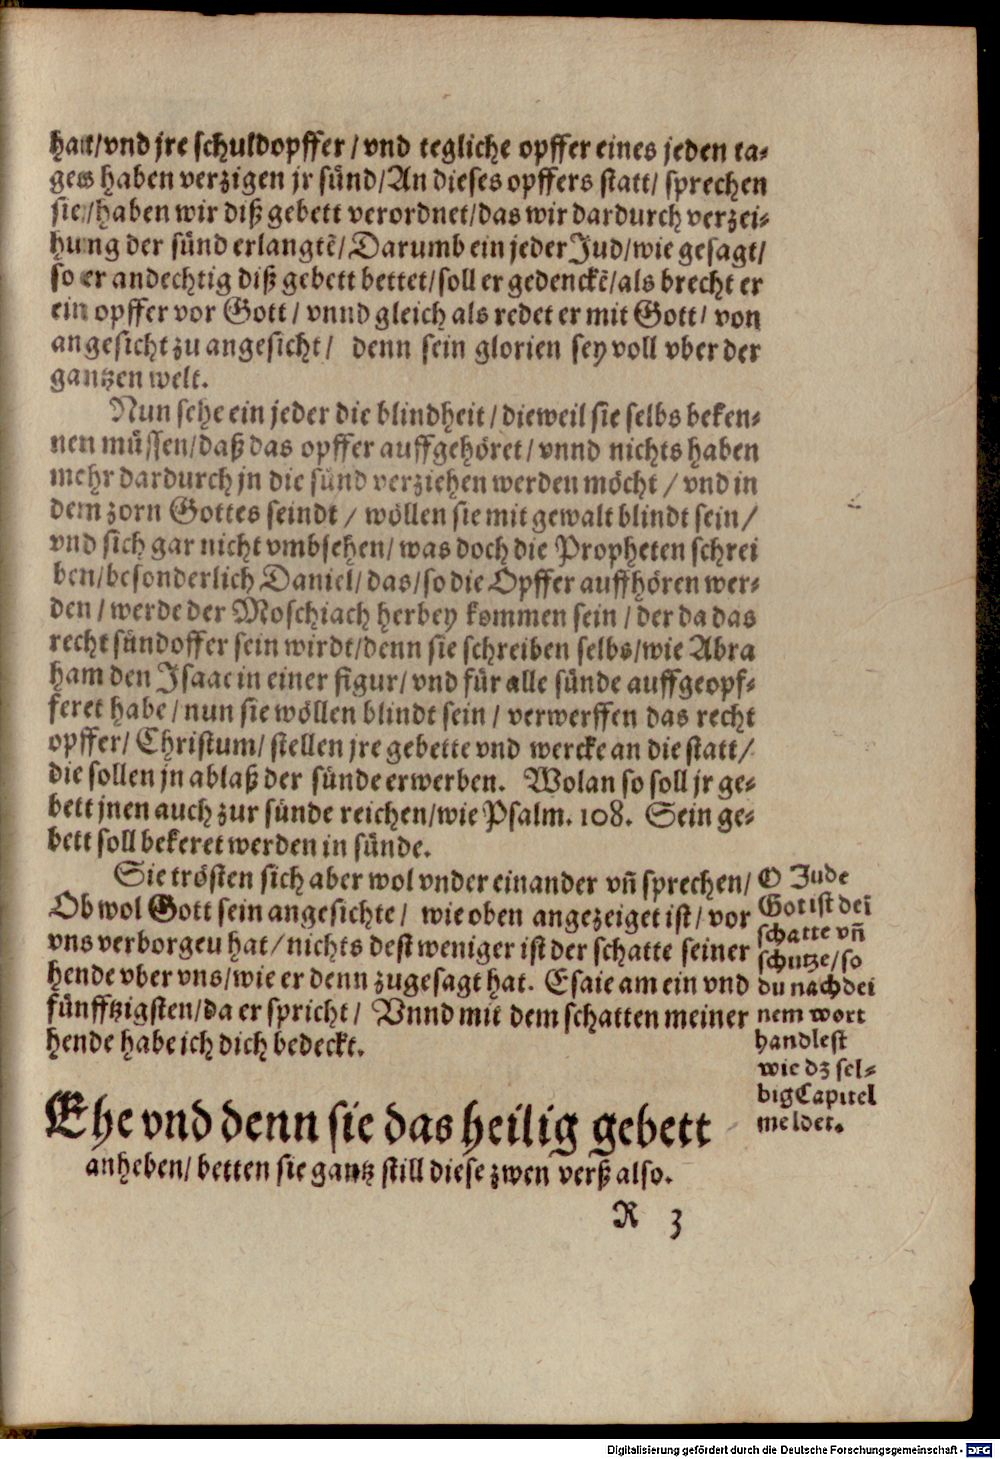 hatt/vnd jre schuldopffer/vnd tegliche opffer eines jeden ta-
ges haben verzigen jr sünd/An dieses opffers statt/sprechen
sie/haben wir diß gebett verordnet/das wir dardurch verzei-
hung der sünd erlangtē/Darumb ein jeder Jud/wie gesagt/
so er andechtig diß gebett bettet/soll er gedenckē/als brecht er
ein opffer vor Gott/vnnd gleich als redet er mit Gott/von
angesicht zu angesicht/ denn sein glorien sey voll vber der
gantzen welt.
Nun sehe ein jeder die blindheit/dieweil sie selbs beken-
nen müssen/daß das opffer auffgehöret/vnnd nichts haben
mehr dardurch jn die sünd verziehen werden möcht/vnd in
dem zorn Gottes seindt/wöllen sie mit gewalt blindt sein/
vnd sich gar nicht vmbsehen/was doch die Propheten schrei
ben/besonderlich Daniel/das/so die Opffer auffhören wer-
den/werde der Moschiach herbey kommen sein/der da das
recht sündoffer sein wirdt/denn sie schreiben selbs/wie Abra
ham den Isaac in einer figur/vnd für alle sünde auffgeopf-
feret habe/nun sie wöllen blindt sein/verwerffen das recht
opffer/Christum/stellen jre gebette vnd wercke an die statt/
die sollen jn ablaß der sünde erwerben. Wolan so soll jr ge-
bett jnen auch zur sünde reichen/wie Psalm. 108. Sein ge-
bett soll bekeret werden in sünde.
Sie trösten sich aber wol vnder einander vñ sprechen/
Ob wol Gott sein angesichte/ wie oben angezeiget ist/vor
vns verborgeu hat/nichts dest weniger ist der schatte seiner
hende vber vns/wie er denn zugesagt hat. Esaie am ein vnd
fünfftzigsten/da er spricht/ Vnnd mit dem schatten meiner
hende habe ich dich bedeckt.
O Jude
Got ist dei̅
schatte vñ
schutze/so
du nach dei
nem wort
handlest
wie dz sel-
big Capitel
meldet.
Ehe vnd denn sie das heilig gebett
anheben/betten sie gantz still diese zwen verß also.
R 3
Digitalisierung gefördert durch die Deutsche Forschungsgemeinschaft - DFG